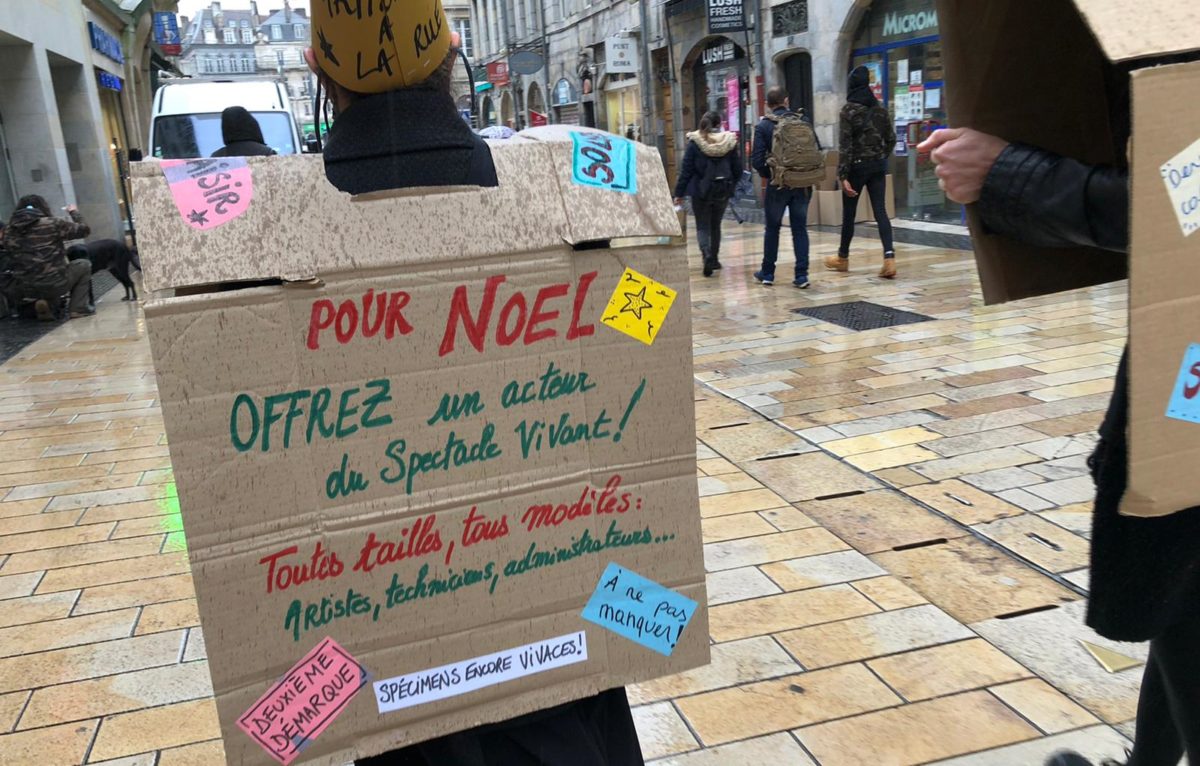 À LA RUE
LUSH
FRESH
HANDMADE
COSMETICS
LUSH
MICROM
SOL
POUR NOEL
OFFREZ un acteur
du Spectacle Vivant!
Toutes tailles, tous modèles:
Artistes, techniciens, administrateurs...
À ne pas
manquer
SPÉCIMENS ENCORE VIVACES!
DEUXIÈME
DÉMARQUE